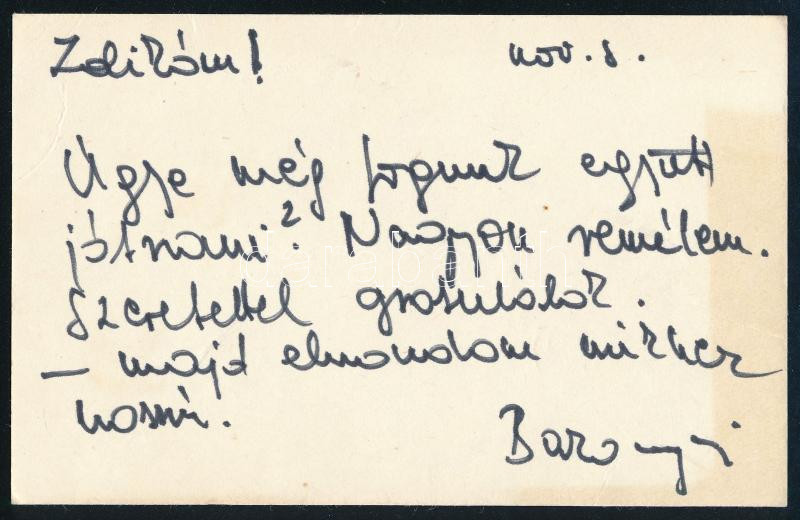 Zdikám! nov. 8.
Ugye még fogunk együtt
játszani? Nagyon remélem.
Szeretettel gratulálok.
– majd elmondom mihez
hosszú.
Baranyi
darabanth